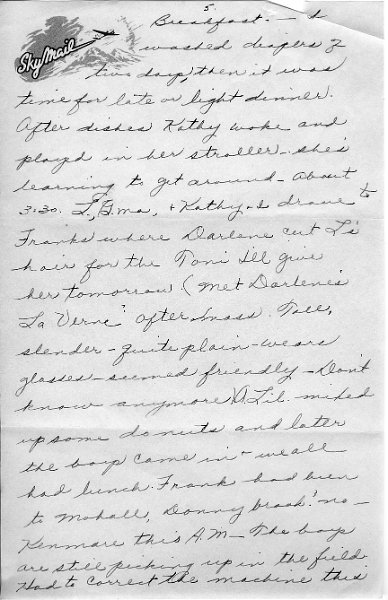 5
SkyMail
Breakfast. — I
washed diapers 2
two days, then it was
time for late or light dinner.
After dishes Kathy woke and
played in her stroller - she's
learning to get around - About
3:30. L, G.ma, + Kathy + I drove to
Franks where Darlene cut L's
hair for the Toni I'll give
her tomorrow. (Met Darlene's
La Verne after mass. Tall,
slender - quite plain - wears
glasses - seemed friendly - Don't
know anymore). Lil. mixed
up some donuts and later
the boys came in + we all
had lunch. Frank had been
to Mohall, Donnybrook! no -
Kenmare this A.M. - The boys
are still picking up in the field
Had to correct the machine this